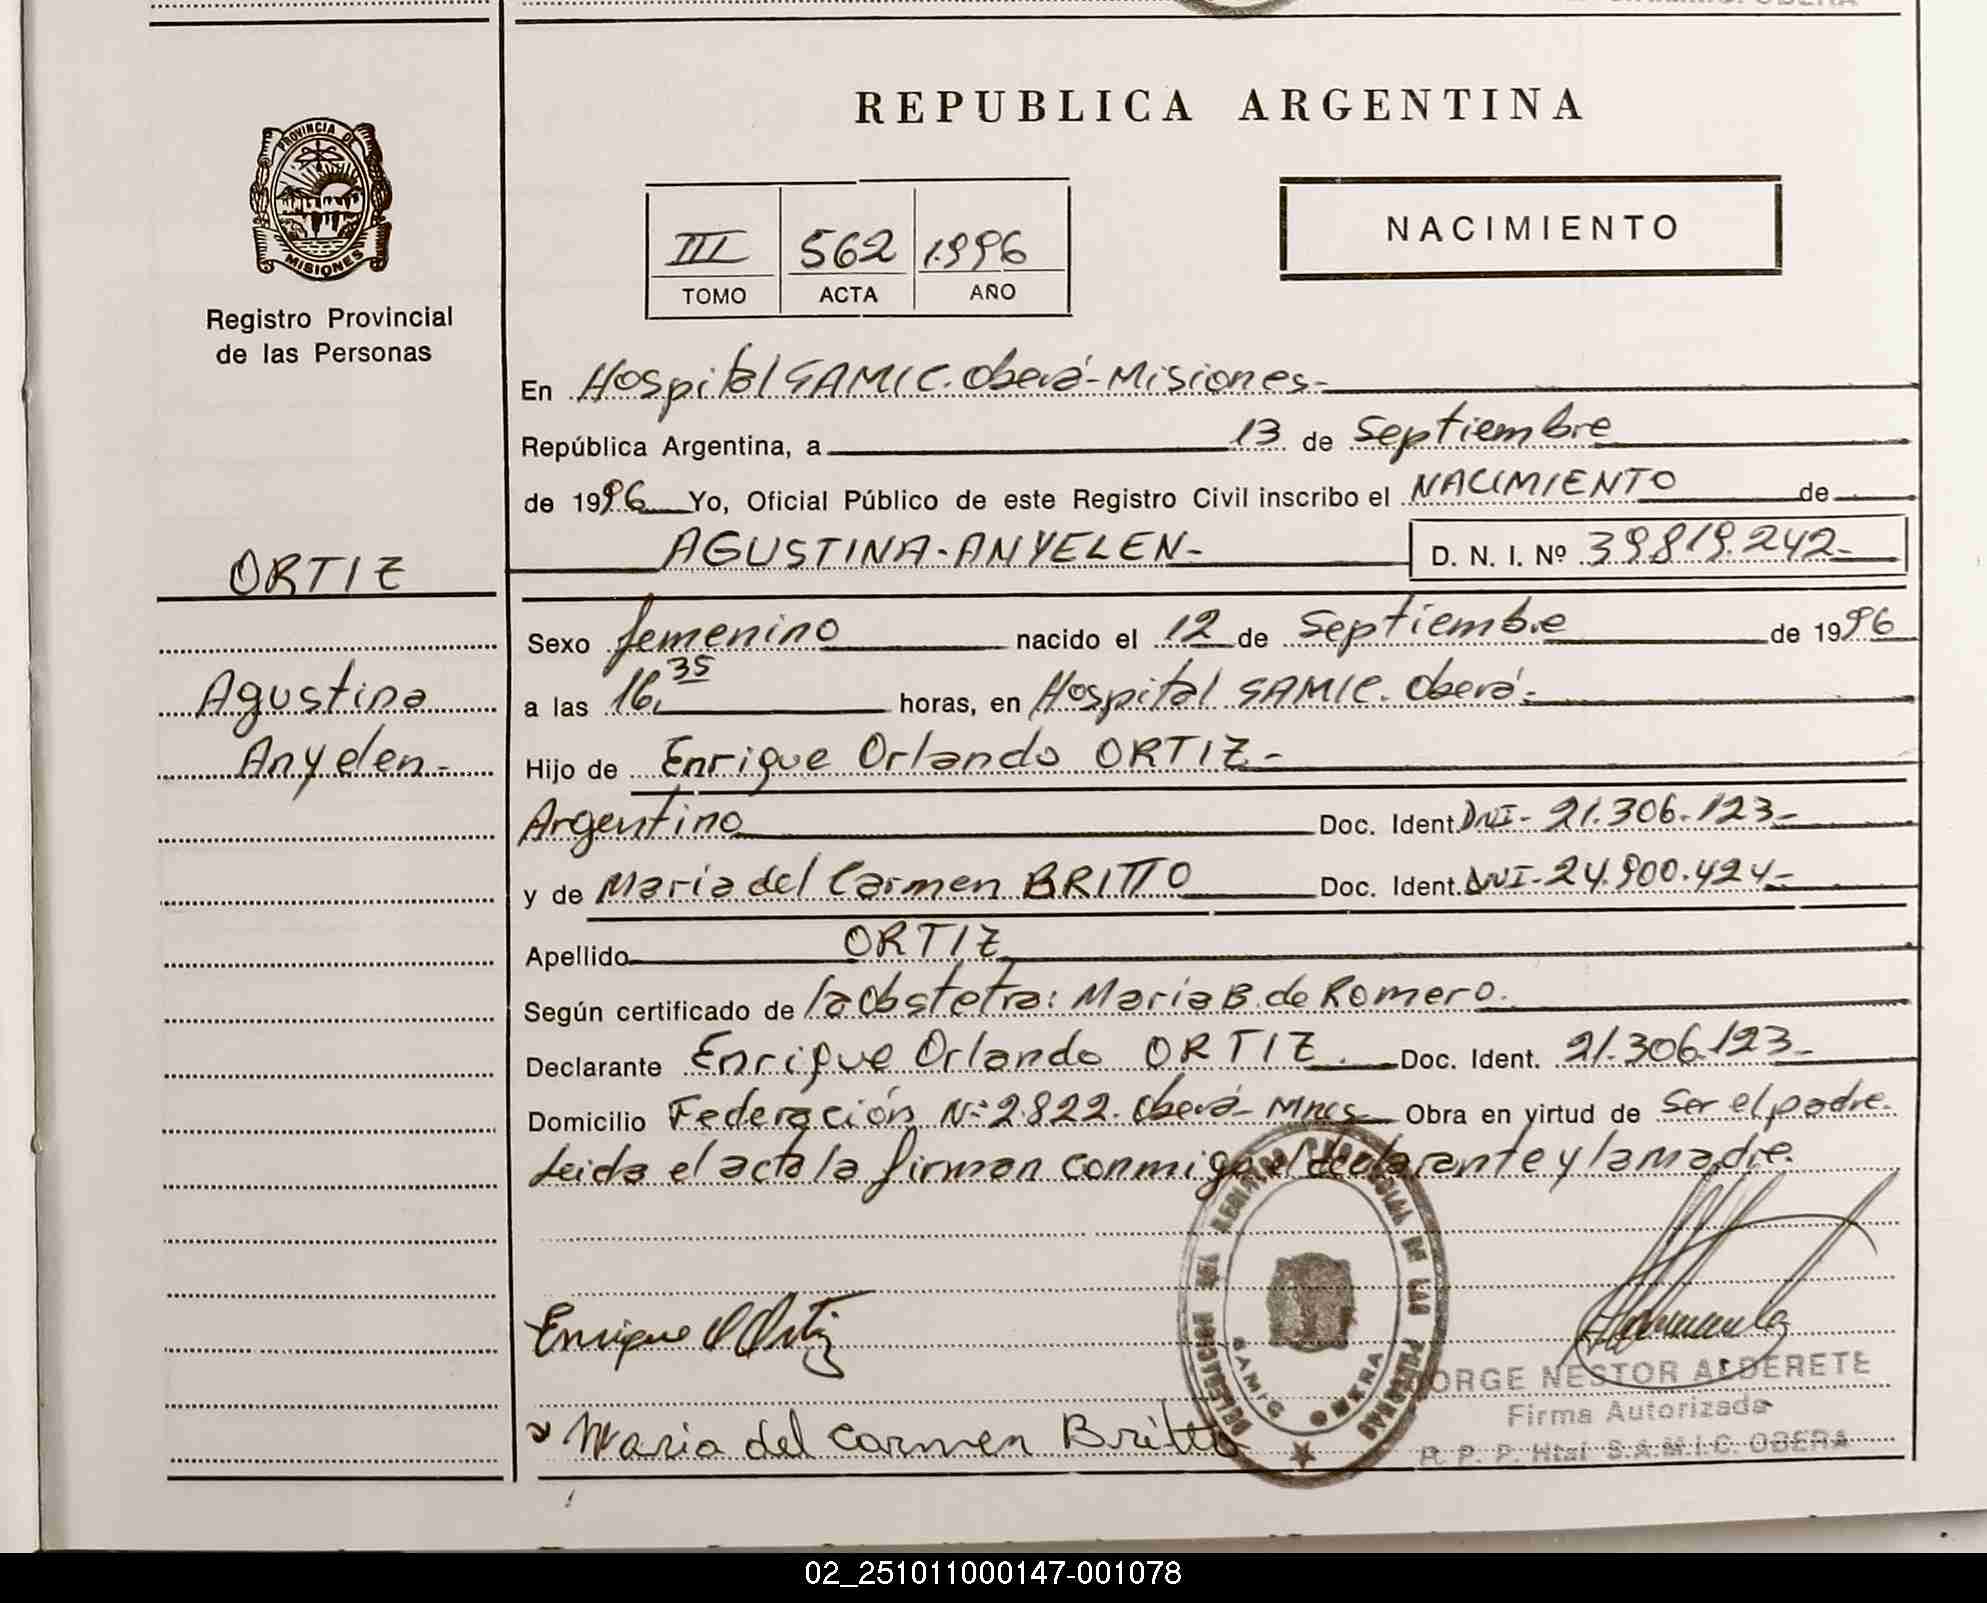 REPUBLICA ARGENTINA
PROVINCIA DE
MISIONES
Registro Provincial
de las Personas
NACIMIENTO
III 562 1996
TOMO ACTA AÑO
En Hospital SAMIC. Oberá-Misiones-
República Argentina, a 13 de Septiembre
de 1996 Yo, Oficial Público de este Registro Civil inscribo el NACIMIENTO de
AGUSTINA-ANYELEN- D. N. I. Nº 39.819.242-
ORTIZ
Agustina
Anyelen-
Sexo femenino nacido el 12 de Septiembre de 1996
a las 16,35 horas, en Hospital SAMIC. Oberá-
Hijo de Enrique Orlando ORTIZ-
Argentino Doc. Ident. DNI- 21.306.123-
y de María del Carmen BRITTO Doc. Ident. DNI-24.900.424-
Apellido ORTIZ
Según certificado de la Obstetra: María B. de Romero.
Declarante Enrique Orlando ORTIZ. Doc. Ident. 21.306.123-
Domicilio Federación Nº 2822. Oberá- Mnes Obra en virtud de Ser el padre.
Leida el acta la firman conmigo el declarante y la madre.
Enrique O Ortiz
Maria del Carmen Britto
REGISTRO PROVINCIAL DE LAS PERSONAS
DELEGACION
SAMIC OBERA
JORGE NESTOR ALDERETE
Firma Autorizada
R. P. P. Htal S.A.M.I.C. OBERA
02_251011000147-001078